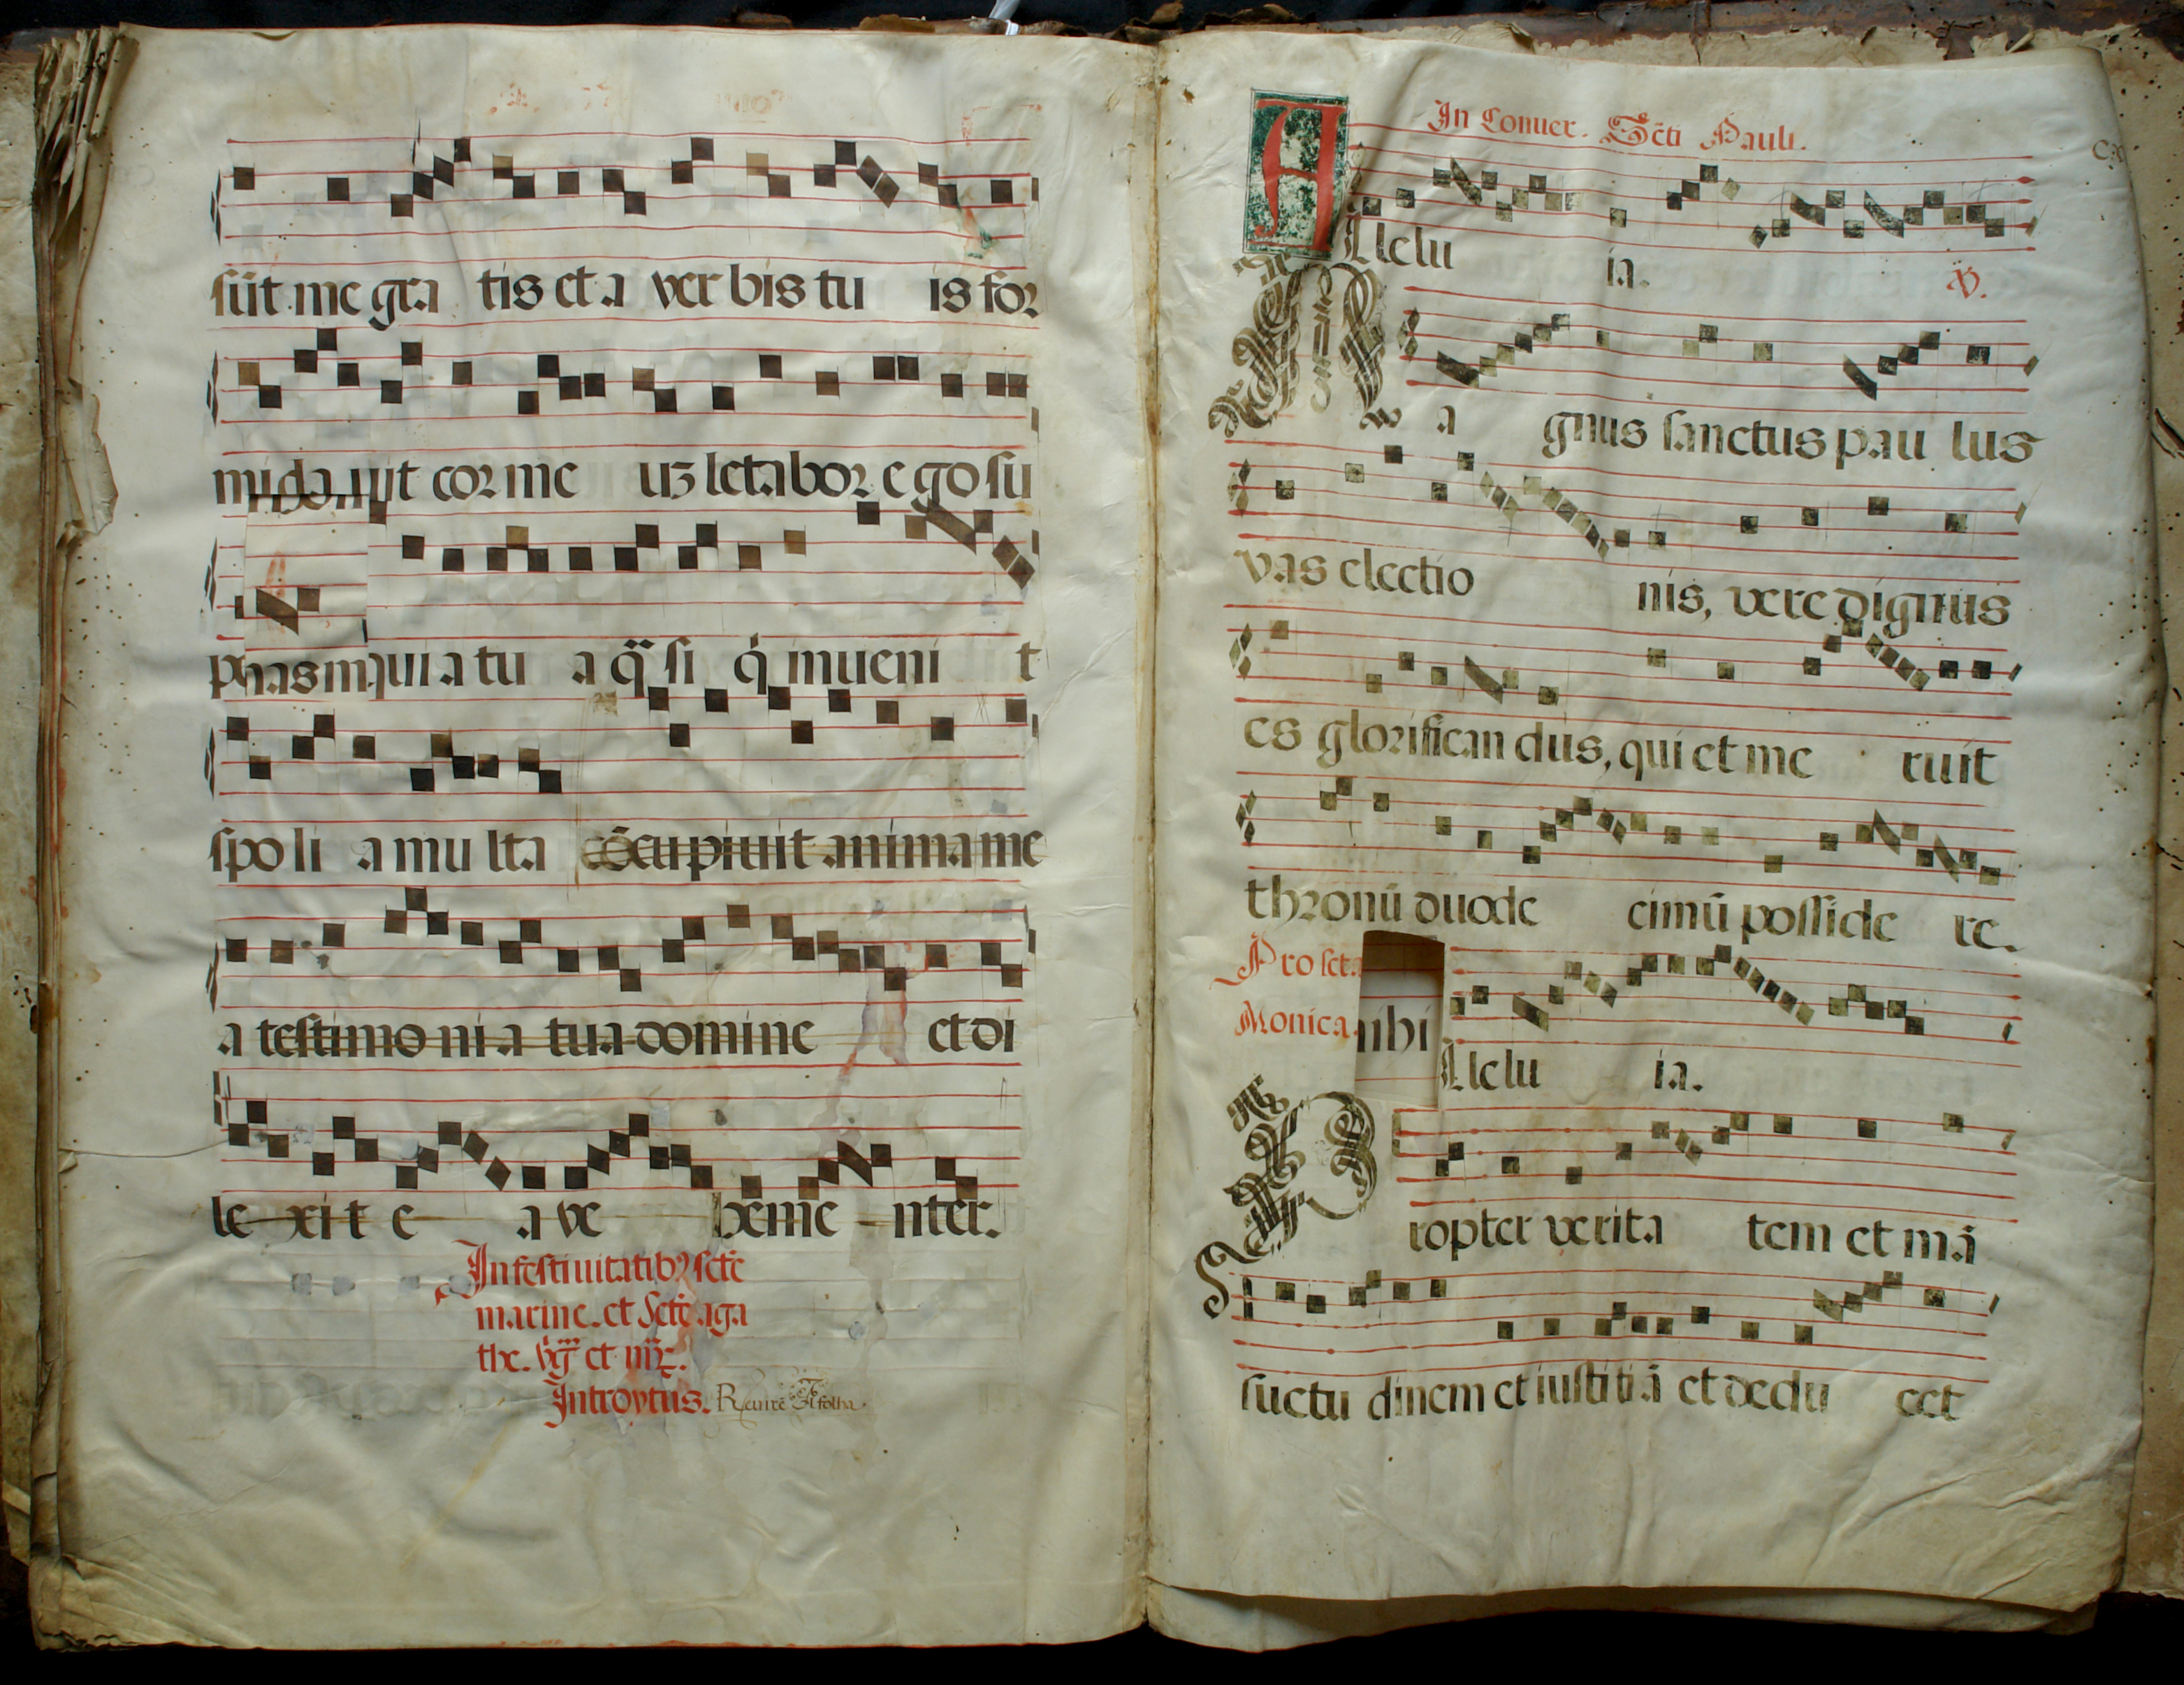 sūt me gra tis et a ver bis tu is for
mida uit cor me uz letabor ego su
a tu a q̃ si q̇ inueni t
spoli a mu lta cōcupiuit anima me
a testimo ni a tua domine et di
le xit e a ve heme nter.
In festiuitatibꝫ scte
marine. et Scte aga
the. et
Introytus. folha.
In Conuer. Scti Pauli.
A
Llelu ia. V.
M a gnus sanctus pau lus
vas electio nis, vere dignus
es glorifican dus, qui et me ruit
thronū duode cimū posside re.
Pro scta
Monica. nihi
Llelu ia.
P
ropter verita tem et mā
suetu dinem et iustitiā et dedu cet